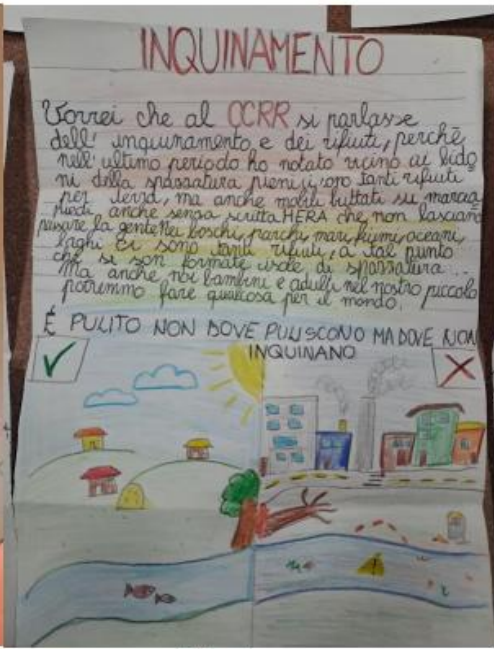 INQUINAMENTO
Vorrei che al CCRR si parlasse
dell'inquinamento, e dei rifiuti, perchè
nell'ultimo periodo ho notato vicino ai bido
ni della spazzatura pieni ci sono tanti rifiuti
per terra, ma anche mobili buttati su marcia
piedi anche senza scritta HERA che non lasciano
passare la gente. Nei boschi, parchi, mari, fiumi, oceani,
laghi ci sono tanti rifiuti, a tal punto
che si son formate isole di spazzatura...
Ma anche noi bambini e adulti nel nostro piccolo
potremmo fare qualcosa per il mondo.
É PULITO NON DOVE PULISCONO MA DOVE NON
INQUINANO